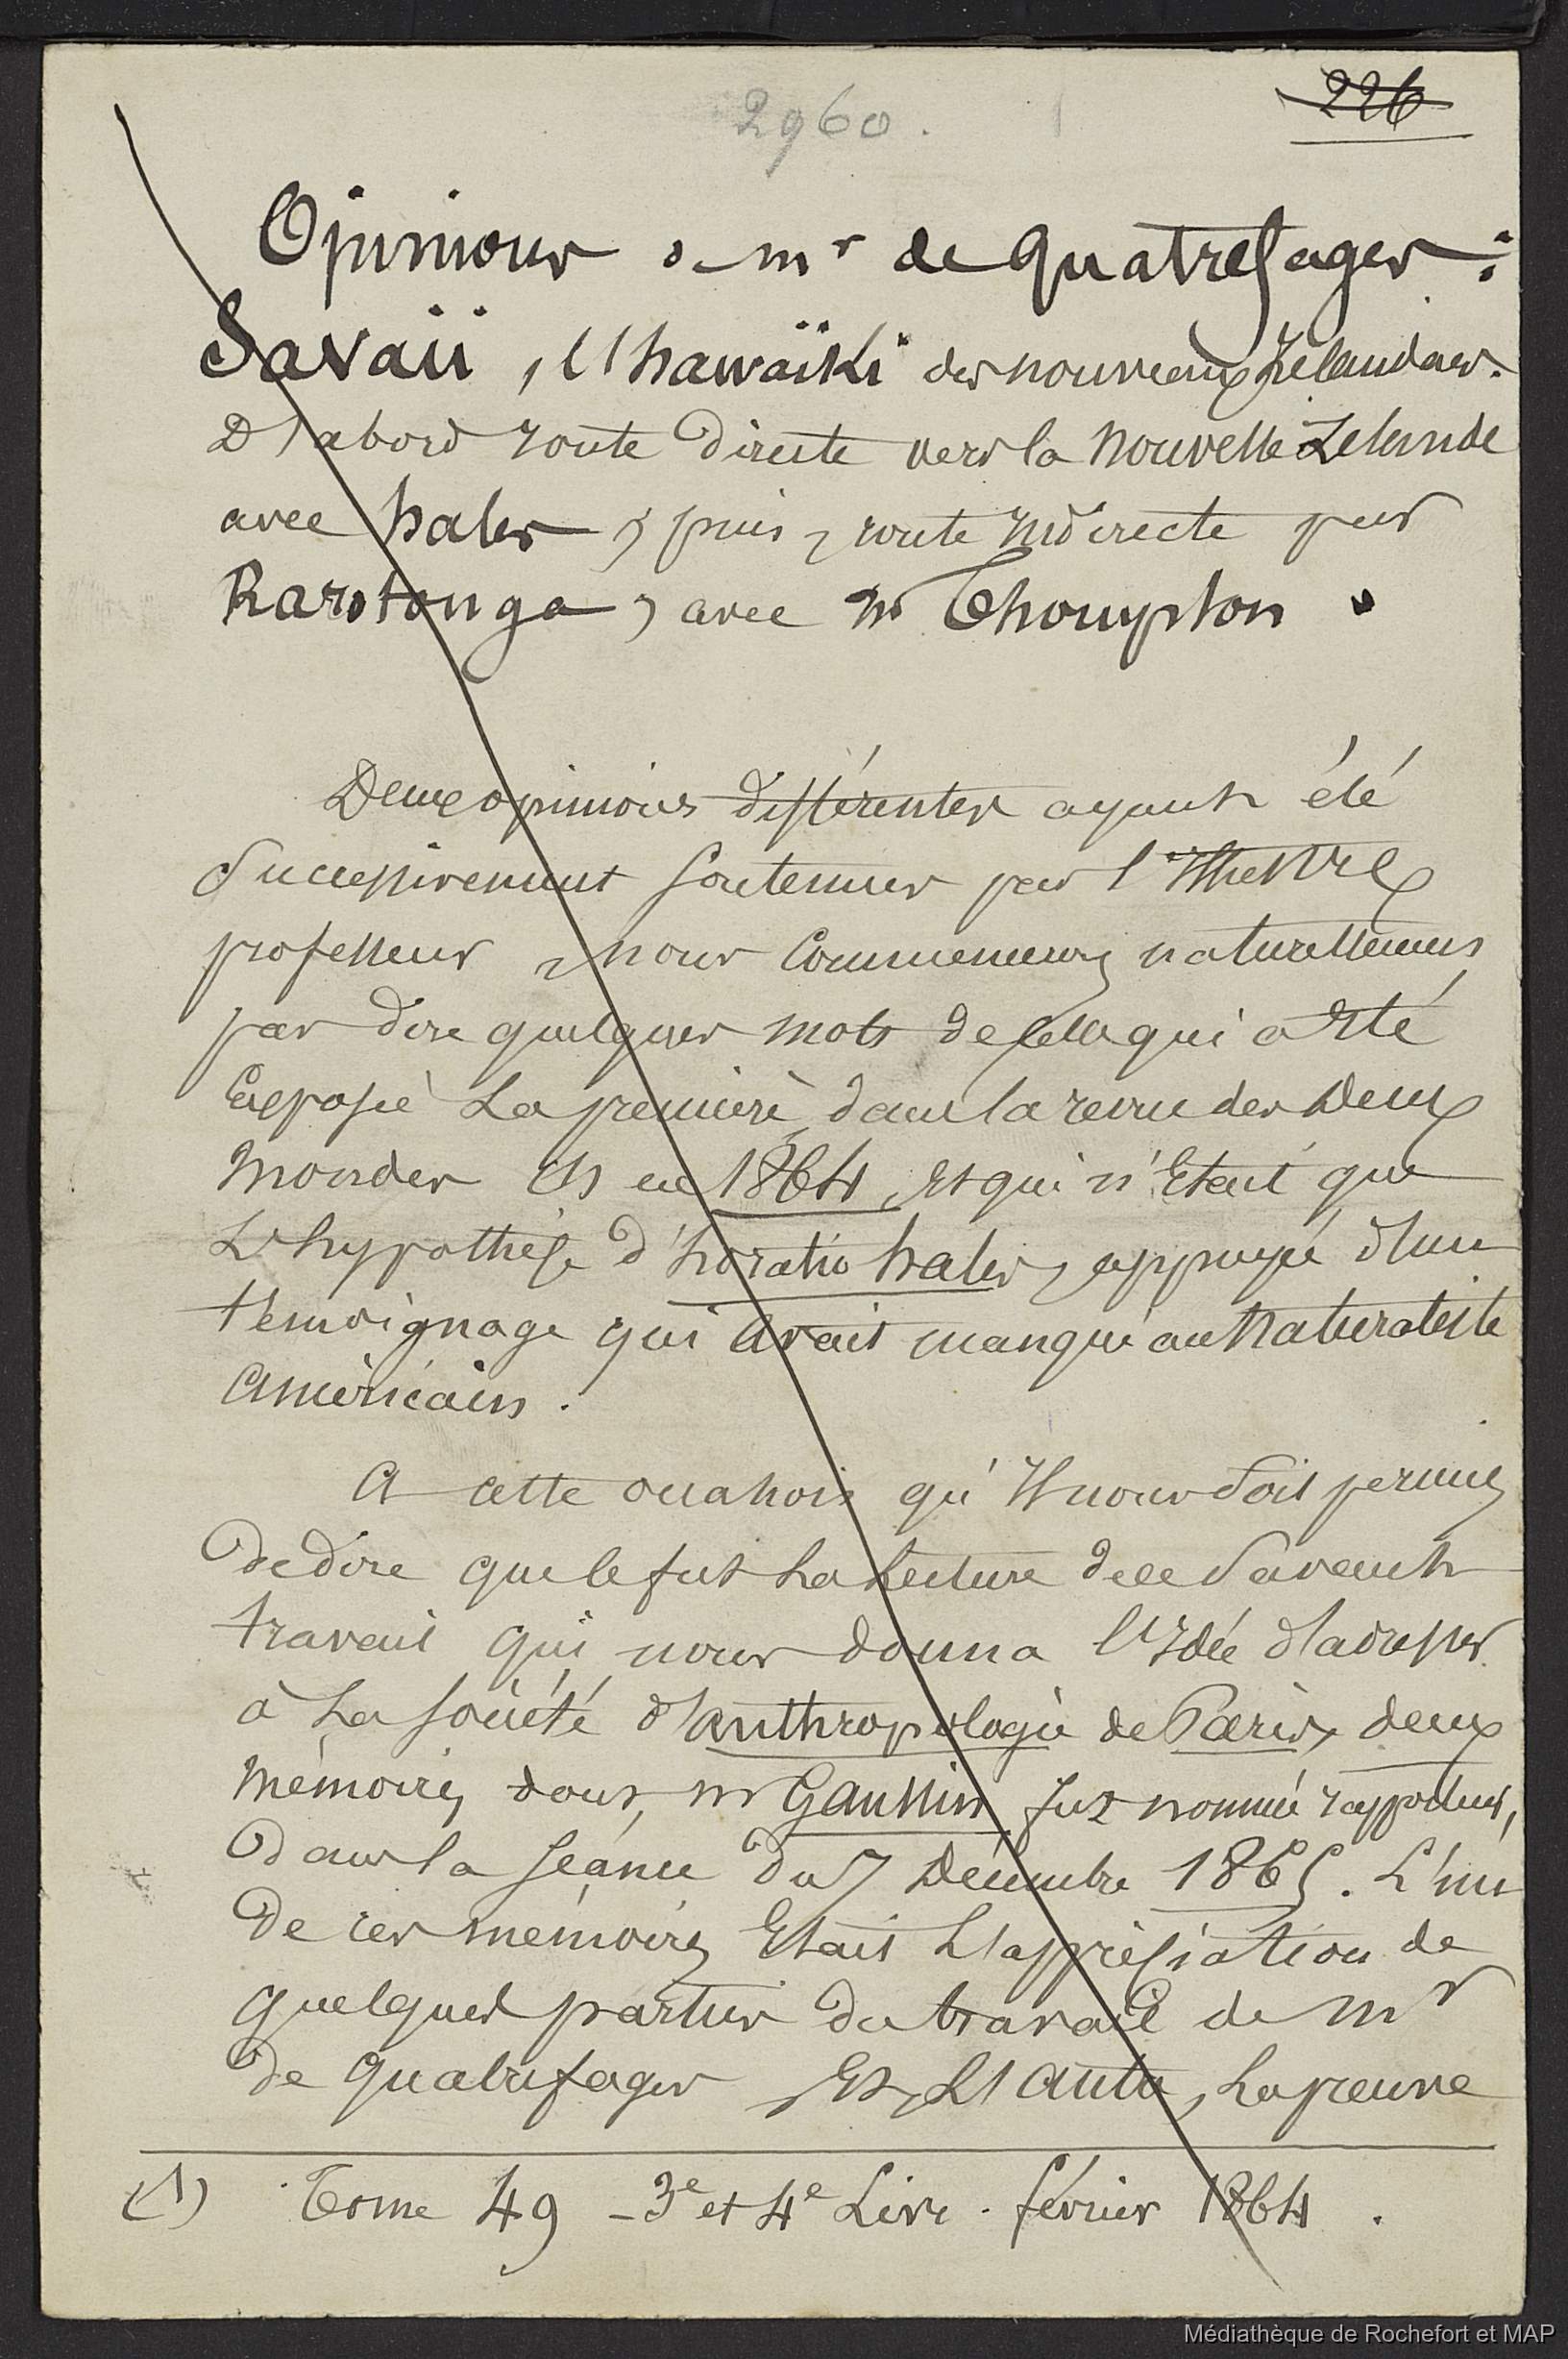 2960.
226
Opinions de mr de Quatrefages :
Savaii, l'hawaïki des nouveaux Zelandais.
D'abord route directe vers la Nouvelle Zelande
avec hales, puis, route indirecte par
Rarotonga, avec mr Thompson.
Deux opinions différentes ayant été
successivement soutenues par l'Illustre
professeur, nous commencerons naturellement
par dire quelques mots de celle qui a été
Exposée La première, dans la revue des Deux
Mondes (1) en 1864, et qui n'Etait que
L'hypothèse d'horatio hales, appuyée d'un
témoignage qui avait manqué au Naturaliste
américain.
A cette occasion qu'Il nous soit permis
de dire que ce fut La Lecture de ce Savant
travail qui nous donna l'Idée d'adresser
à La Société d'anthropologie de Paris, deux
Mémoires dont, mr Gaussin fut nommé rapporteur,
dans la séance du 7 Décembre 1865. L'un
De ces mémoires Etait L'appréciation de
quelques parties du travail de mr
de Quatrefages, Et, L'autre, La preuve
(1) Tome 49 - 3e et 4e Livr. février 1864.
Médiathèque de Rochefort et MAP